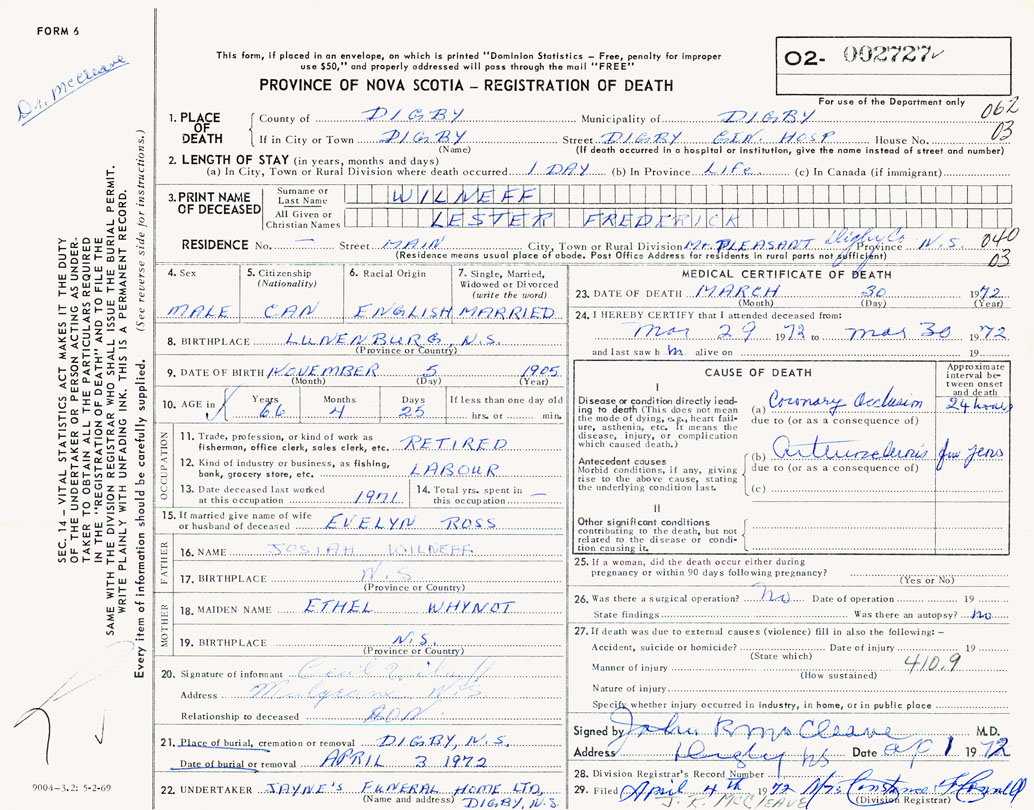 FORM 6
Dr. McCleave
This form, if placed in an envelope, on which is printed "Dominion Statistics – Free, penalty for improper
use $50," and properly addressed will pass through the mail "FREE"
PROVINCE OF NOVA SCOTIA – REGISTRATION OF DEATH
O2- 002727
For use of the Department only
062
03
1. PLACE OF DEATH
County of DIGBY Municipality of DIGBY
If in City or Town DIGBY Street DIGBY GEN. HOSP House No.
(Name) (If death occurred in a hospital or institution, give the name instead of street and number)
2. LENGTH OF STAY (in years, months and days)
(a) In City, Town or Rural Division where death occurred 1 DAY (b) In Province LIFE. (c) In Canada (if immigrant)
3. PRINT NAME OF DECEASED
Surname or Last Name WILNEFF
All Given or Christian Names LESTER FREDERICK
RESIDENCE No. — Street MAIN City, Town or Rural Division Mt. PLEASANT Digby Co Province N.S. 040
(Residence means usual place of abode. Post Office Address for residents in rural parts not sufficient) 03
4. Sex
MALE
5. Citizenship (Nationality)
CAN
6. Racial Origin
ENGLISH
7. Single, Married, Widowed or Divorced (write the word)
MARRIED
8. BIRTHPLACE LUNENBURG, N.S.
(Province or Country)
9. DATE OF BIRTH NOVEMBER 5 1905
(Month) (Day) (Year)
10. AGE in Years 66 Months 4 Days 25 If less than one day old
hrs. or min.
OCCUPATION
11. Trade, profession, or kind of work as
fisherman, office clerk, sales clerk, etc. RETIRED
12. Kind of industry or business, as fishing,
bank, grocery store, etc. LABOUR
13. Date deceased last worked
at this occupation 1971
14. Total yrs. spent in
this occupation —
15. If married give name of wife
or husband of deceased EVELYN ROSS
FATHER
16. NAME JOSIAH WILNEFF
17. BIRTHPLACE N.S
(Province or Country)
MOTHER
18. MAIDEN NAME ETHEL WHYNOT
19. BIRTHPLACE N.S.
(Province or Country)
20. Signature of informant Cecil
Address Mulgrave, N.S
Relationship to deceased SON
21. Place of burial, cremation or removal DIGBY, N.S.
Date of burial or removal APRIL 3 1972
22. UNDERTAKER JAYNE'S FUNERAL HOME LTD,
(Name and address) DIGBY, N.S.
MEDICAL CERTIFICATE OF DEATH
23. DATE OF DEATH MARCH 30 1972
(Month) (Day) (Year)
24. I HEREBY CERTIFY that I attended deceased from:
Mar 29 1972 to Mar 30 1972
and last saw h m alive on 19
CAUSE OF DEATH
Approximate interval between onset and death
I
Disease or condition directly leading to death (This does not mean the mode of dying, e.g., heart failure, asthenia, etc. It means the disease, injury, or complication which caused death.)
(a) Coronary Occlusion 24 hours
due to (or as a consequence of)
Antecedent causes
Morbid conditions, if any, giving rise to the above cause, stating the underlying condition last.
(b) Arteriosclerosis few years
due to (or as a consequence of)
(c)
II
Other significant conditions
contributing to the death, but not related to the disease or condition causing it.
25. If a woman, did the death occur either during
pregnancy or within 90 days following pregnancy?
(Yes or No)
26. Was there a surgical operation? No Date of operation 19
State findings Was there an autopsy? no
27. If death was due to external causes (violence) fill in also the following: –
Accident, suicide or homicide? Date of injury 19
(State which)
Manner of injury 410.9
(How sustained)
Nature of injury
Specify whether injury occurred in industry, in home, or in public place
Signed by John R McCleave M.D.
Address Digby NS Date Apl 1 1972
28. Division Registrar's Record Number
29. Filed April 4th 1972 Mrs Constance
J. R. MCCLEAVE (Division Registrar)
SEC. 14 – VITAL STATISTICS ACT MAKES IT THE DUTY
OF THE UNDERTAKER OR PERSON ACTING AS UNDER-
TAKER TO OBTAIN ALL THE PARTICULARS REQUIRED
IN THE "REGISTRATION OF DEATH" AND TO FILE THE
SAME WITH THE DIVISION REGISTRAR WHO SHALL ISSUE THE BURIAL PERMIT.
WRITE PLAINLY WITH UNFADING INK. THIS IS A PERMANENT RECORD.
Every item of information should be carefully supplied. (See reverse side for instructions.)
9004-3.2: 5-2-69